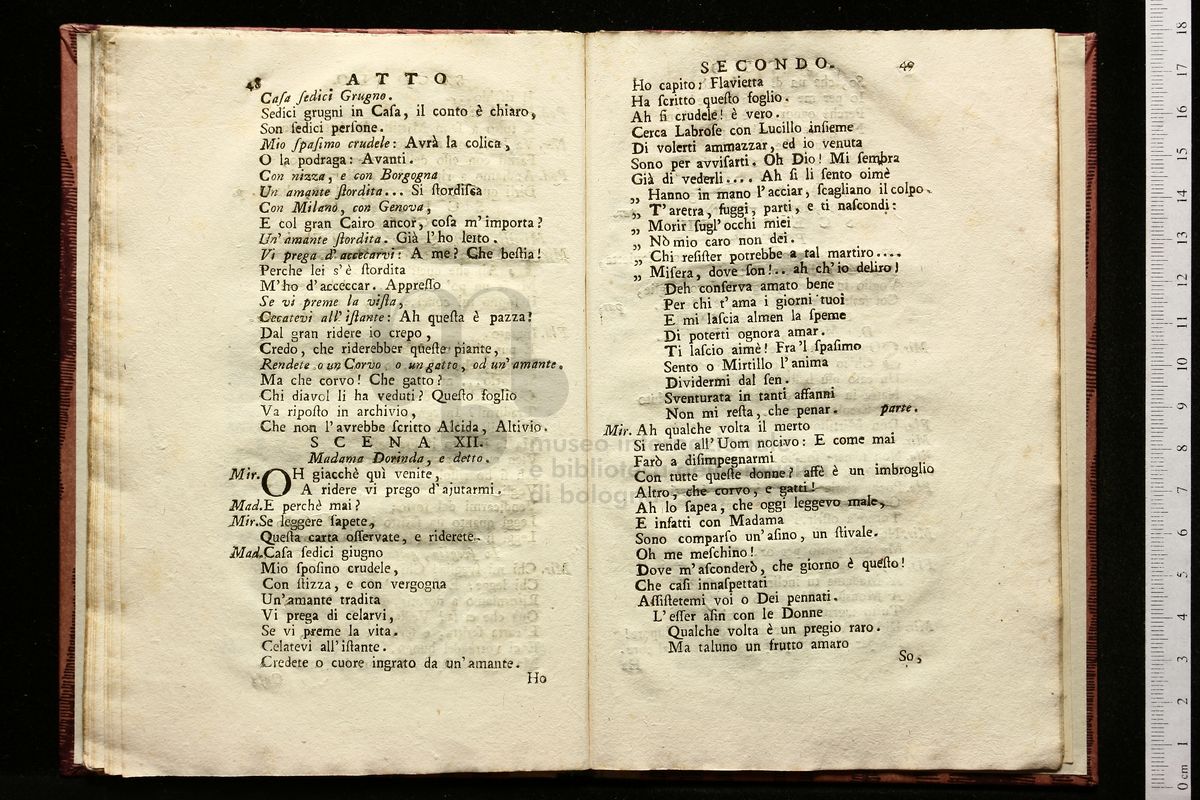 48 ATTO
Caſa ſedici Grugno.
Sedici grugni in Caſa, il conto è chiaro,
Son ſedici perſone.
Mio ſpaſimo crudele: Avrà la colica,
O la podraga: Avanti.
Con nizza, e con Borgogna
Un amante ſtordita... Si ſtordiſca
Con Milano, con Genova,
E col gran Cairo ancor, coſa m'importa?
Un'amante ſtordita. Già l'ho letto.
Vi prega d'accecarvi: A me? Che beſtia!
Perche lei s'è ſtordita
M'ho d'acceccar. Appreſſo
Se vi preme la viſta,
Cecatevi all'iſtante: Ah queſta è pazza!
Dal gran ridere io crepo,
Credo, che riderebber queſte piante,
Rendete o un Corvo o un gatto, od un'amante.
Ma che corvo! Che gatto?
Chi diavol li ha veduti? Queſto foglio
Va ripoſto in archivio,
Che non l'avrebbe ſcritto Alcida, Altivio.
SCENA XII.
Madama Dorinda, e detto.
Mir. OH giacchè quì venite,
A ridere vi prego d'ajutarmi.
Mad. E perchè mai?
Mir. Se leggere ſapete,
Queſta carta oſſervate, e riderete.
Mad. Caſa ſedici giugno
Mio ſpoſino crudele,
Con ſtizza, e con vergogna
Un'amante tradita
Vi prega di celarvi,
Se vi preme la vita.
Celatevi all'iſtante.
Credete o cuore ingrato da un'amante.
Ho
SECONDO. 49
Ho capito: Flavietta
Ha ſcritto queſto foglio.
Ah ſi crudele! è vero.
Cerca Labroſe con Lucillo inſieme
Di volerti ammazzar, ed io venuta
Sono per avviſarti. Oh Dio! Mi ſembra
Già di vederli.... Ah ſi li ſento oimè
„ Hanno in mano l'acciar, ſcagliano il colpo.
„ T'aretra, fuggi, parti, e ti naſcondi:
„ Morir ſugl'occhi miei
„ Nò mio caro non dei.
„ Chi reſiſter potrebbe a tal martiro....
„ Miſera, dove ſon!.. ah ch'io deliro!
Deh conſerva amato bene
Per chi t'ama i giorni tuoi
E mi laſcia almen la ſpeme
Di poterti ognora amar.
Ti laſcio aimè! Fra'l ſpaſimo
Sento o Mirtillo l'anima
Dividermi dal ſen.
Sventurata in tanti affanni
Non mi reſta, che penar. parte.
Mir. Ah qualche volta il merto
Si rende all'Uom nocivo: E come mai
Farò a diſimpegnarmi
Con tutte queſte donne? affè è un imbroglio
Altro, che corvo, e gatti!
Ah lo ſapea, che oggi leggevo male,
E infatti con Madama
Sono comparſo un'aſino, un ſtivale.
Oh me meſchino!
Dove m'aſconderò, che giorno è queſto!
Che caſi innaſpettati
Aſſiſtetemi voi o Dei pennati.
L'eſſer aſin con le Donne
Qualche volta è un pregio raro.
Ma taluno un frutto amaro
So,
museo
e biblio
di bolog
0 cm 1 2 3 4 5 6 7 8 9 10 11 12 13 14 15 16 17 18